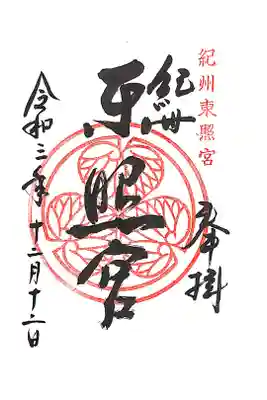 紀州東照宮
奉拝
紀州
東照宮
令和三年十二月十二日